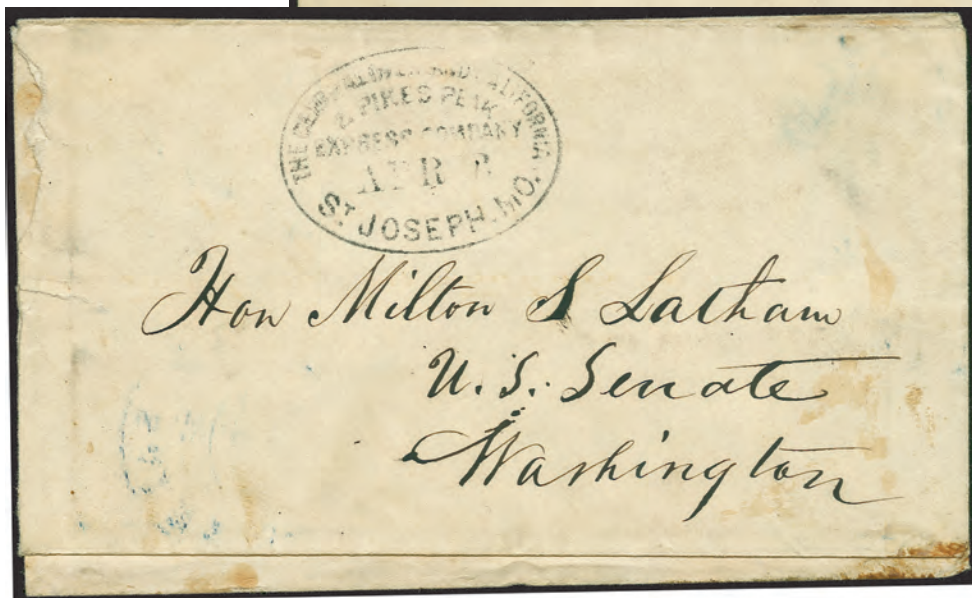 THE CENTRAL OVERLAND CALIFORNIA
& PIKES PEAK
EXPRESS COMPANY
APR 8
ST JOSEPH. MO.
Hon Milton S Latham
U.S. Senate
Washington